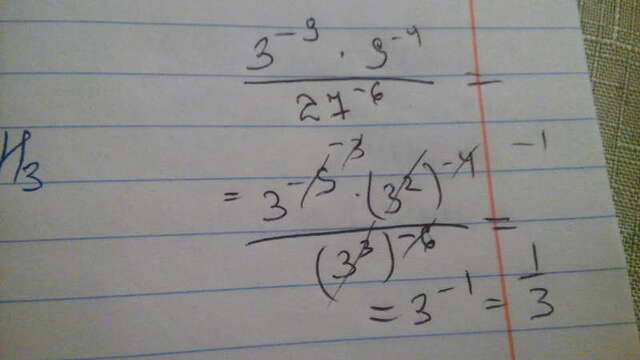 3⁻⁹ · 9⁻⁴
27⁻⁶ =
-3 -1
= 3⁻⁹ · (3²)⁻⁴
(3³)⁻⁶ =
= 3⁻¹ = 1/3